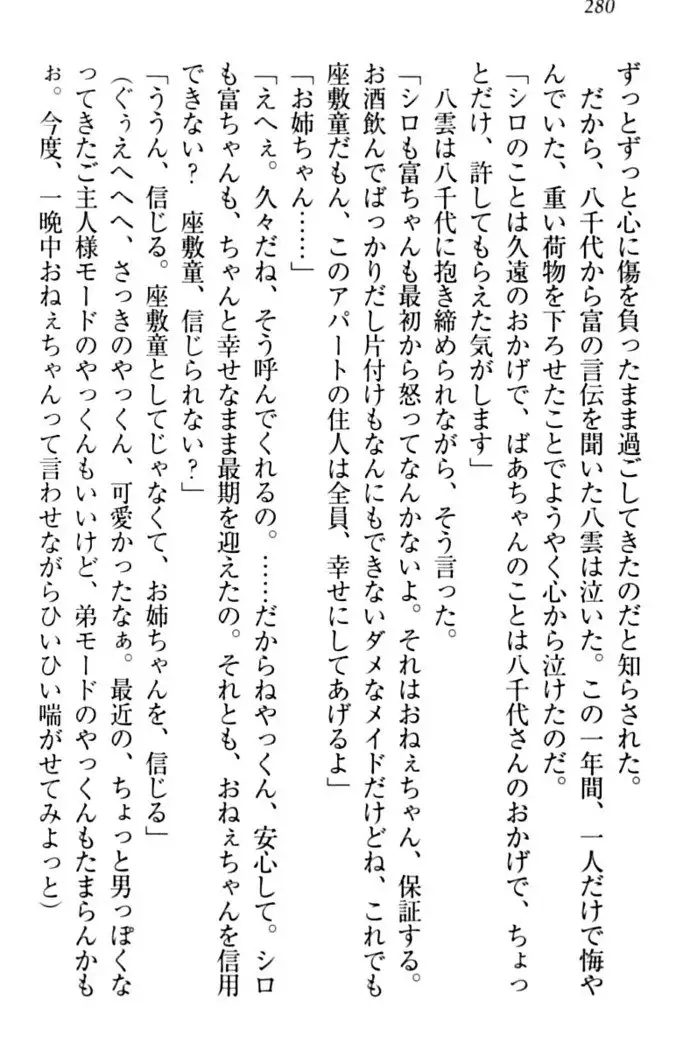 280
ずっとずっと心に傷を負ったまま過ごしてきたのだと知らされた。
だから、八千代から富の言伝を聞いた八雲は泣いた。この一年間、一人だけで悔や
んでいた、重い荷物を下ろせたことでようやく心から泣けたのだ。
「シロのことは久遠のおかげで、ばあちゃんのことは八千代さんのおかげで、ちょっ
とだけ、許してもらえた気がします」
八雲は八千代に抱き締められながら、そう言った。
「シロも富ちゃんも最初から怒ってなんかないよ。それはおねぇちゃん、保証する。
お酒飲んでばっかりだし片付けもなんにもできないダメなメイドだけどね、これでも
座敷童だもん、このアパートの住人は全員、幸せにしてあげるよ」
「お姉ちゃん……」
「えへぇ。久々だね、そう呼んでくれるの。……だからねやっくん、安心して。シロ
も富ちゃんも、ちゃんと幸せなまま最期を迎えたの。それとも、おねぇちゃんを信用
できない？　座敷童、信じられない？」
「ううん、信じる。座敷童としてじゃなくて、お姉ちゃんを、信じる」
（ぐぅえへへへ、さっきのやっくん、可愛かったなぁ。最近の、ちょっと男っぽくな
ってきたご主人様モードのやっくんもいいけど、弟モードのやっくんもたまらんかも
ぉ。今度、一晩中おねぇちゃんって言わせながらひいひい喘がせてみよっと）